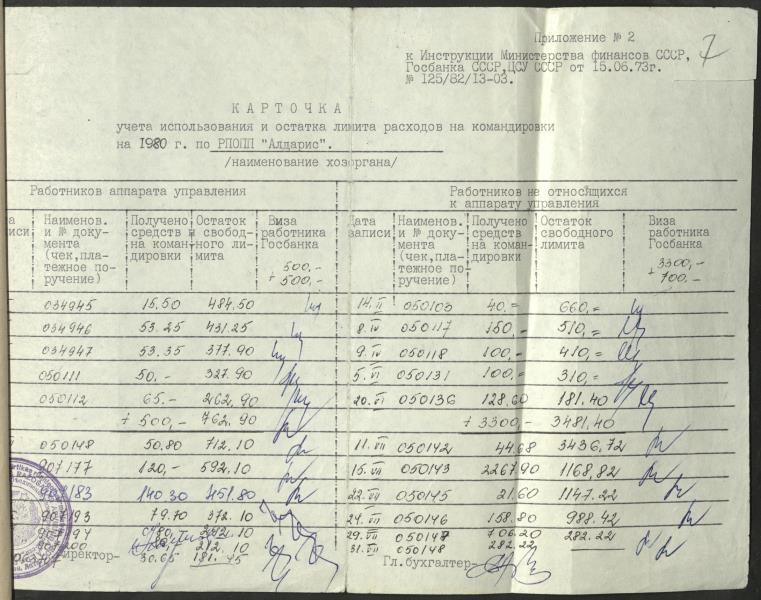 Приложение № 2
к Инструкции Министерства финансов СССР,
Госбанка СССР,ЦСУ СССР от 15.06.73г.
№ 125/82/13-03.
7
КАРТОЧКА
учета использования и остатка лимита расходов на командировки
на 1980 г. по РПОПП "Алдарис".
/наименование хозоргана/
Работников аппарата управления
Работников не относящихся
к аппарату управления
Наименов. и № доку- мента (чек,пла- тежное по- ручение)
Получено средств на коман- дировки
Остаток свобод- ного ли- мита
Виза работника Госбанка
500,-
+ 500,-
Дата записи
Наименов. и № доку- мента (чек,пла- тежное по- ручение)
Получено средств на коман- дировки
Остаток свободного лимита
Виза работника Госбанка
3300,-
+ 700,-
034945 15.50 484.50
14.II 050103 40.= 660,=
034946 53.25 431.25
8.IV 050117 150,- 510,=
034947 53.35 377.90
9.IV 050118 100,- 410,=
050111 50.- 327.90
5.VI 050131 100,- 310,=
050112 65.- 262.90
20.VI 050136 128.60 181.40
+ 500,- 762.90
+ 3300,- 3481.40
050148 50.80 712.10
11.VII 050142 44.68 3436,72
907177 120,- 592.10
15.VII 050143 2267.90 1168,82
183 140.30 451.80
22.VII 050145 21.60 1147.22
907193 79.70 372.10
24.VII 050146 158.80 988.42
242.10
29.VII 050147 706.20 282.22
212.10
31.VII 050148 282.22
30.65 181.45
директор-
Гл.бухгалтер-